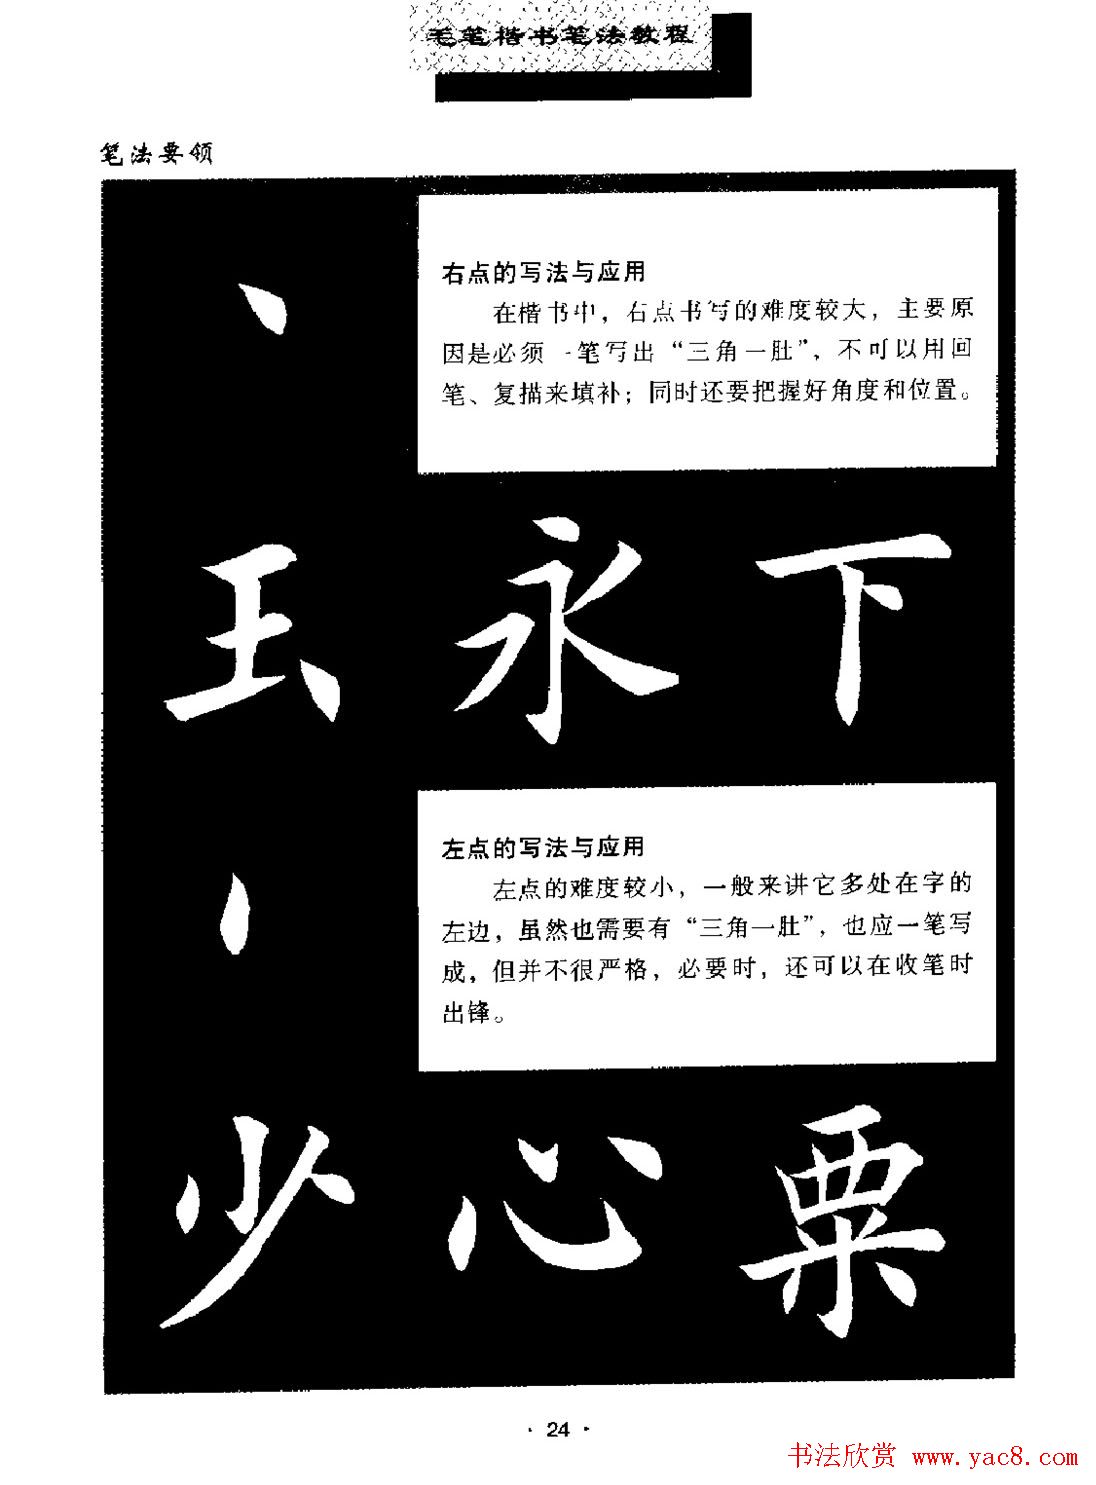 毛笔楷书笔法教程
笔法要领
右点的写法与应用
在楷书中，右点书写的难度较大，主要原
因是必须一笔写出“三角一肚”，不可以用回
笔、复描来填补；同时还要把握好角度和位置。
玉永下
左点的写法与应用
左点的难度较小，一般来讲它多处在字的
左边，虽然也需要有“三角一肚”，也应一笔写
成，但并不很严格，必要时，还可以在收笔时
出锋。
少心粟
· 24 ·
书法欣赏 www.yac8.com